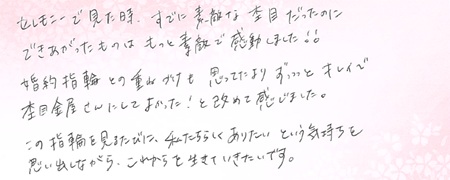 セレモニーで見た時、すでに素敵な杢目だったのに
できあがったものはもっと素敵で感動しました!!
婚約指輪との重ねづけも思ってたよりずっっっとキレイで
杢目金屋さんにしてよかった!と改めて感じました。
この指輪を見るたびに、私たちらしくありたいという気持ちを
思い出しながら、これからを生きていきたいです。